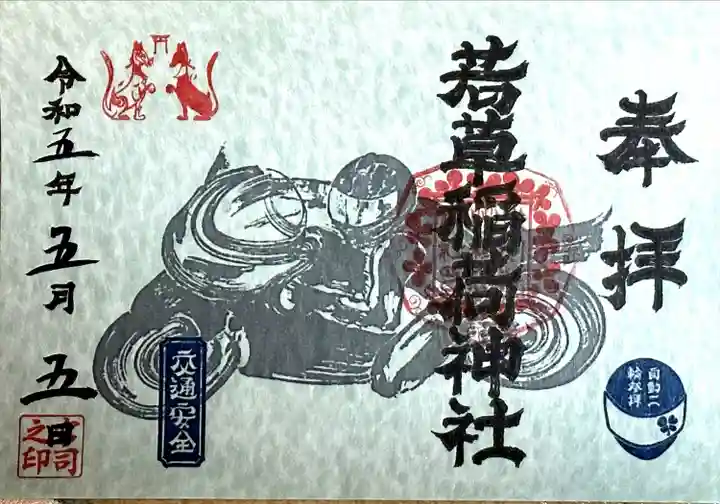 奉拝
若草稲荷神社
自動二
輪参拝
交通安全
令和五年五月五日
宮司
之印